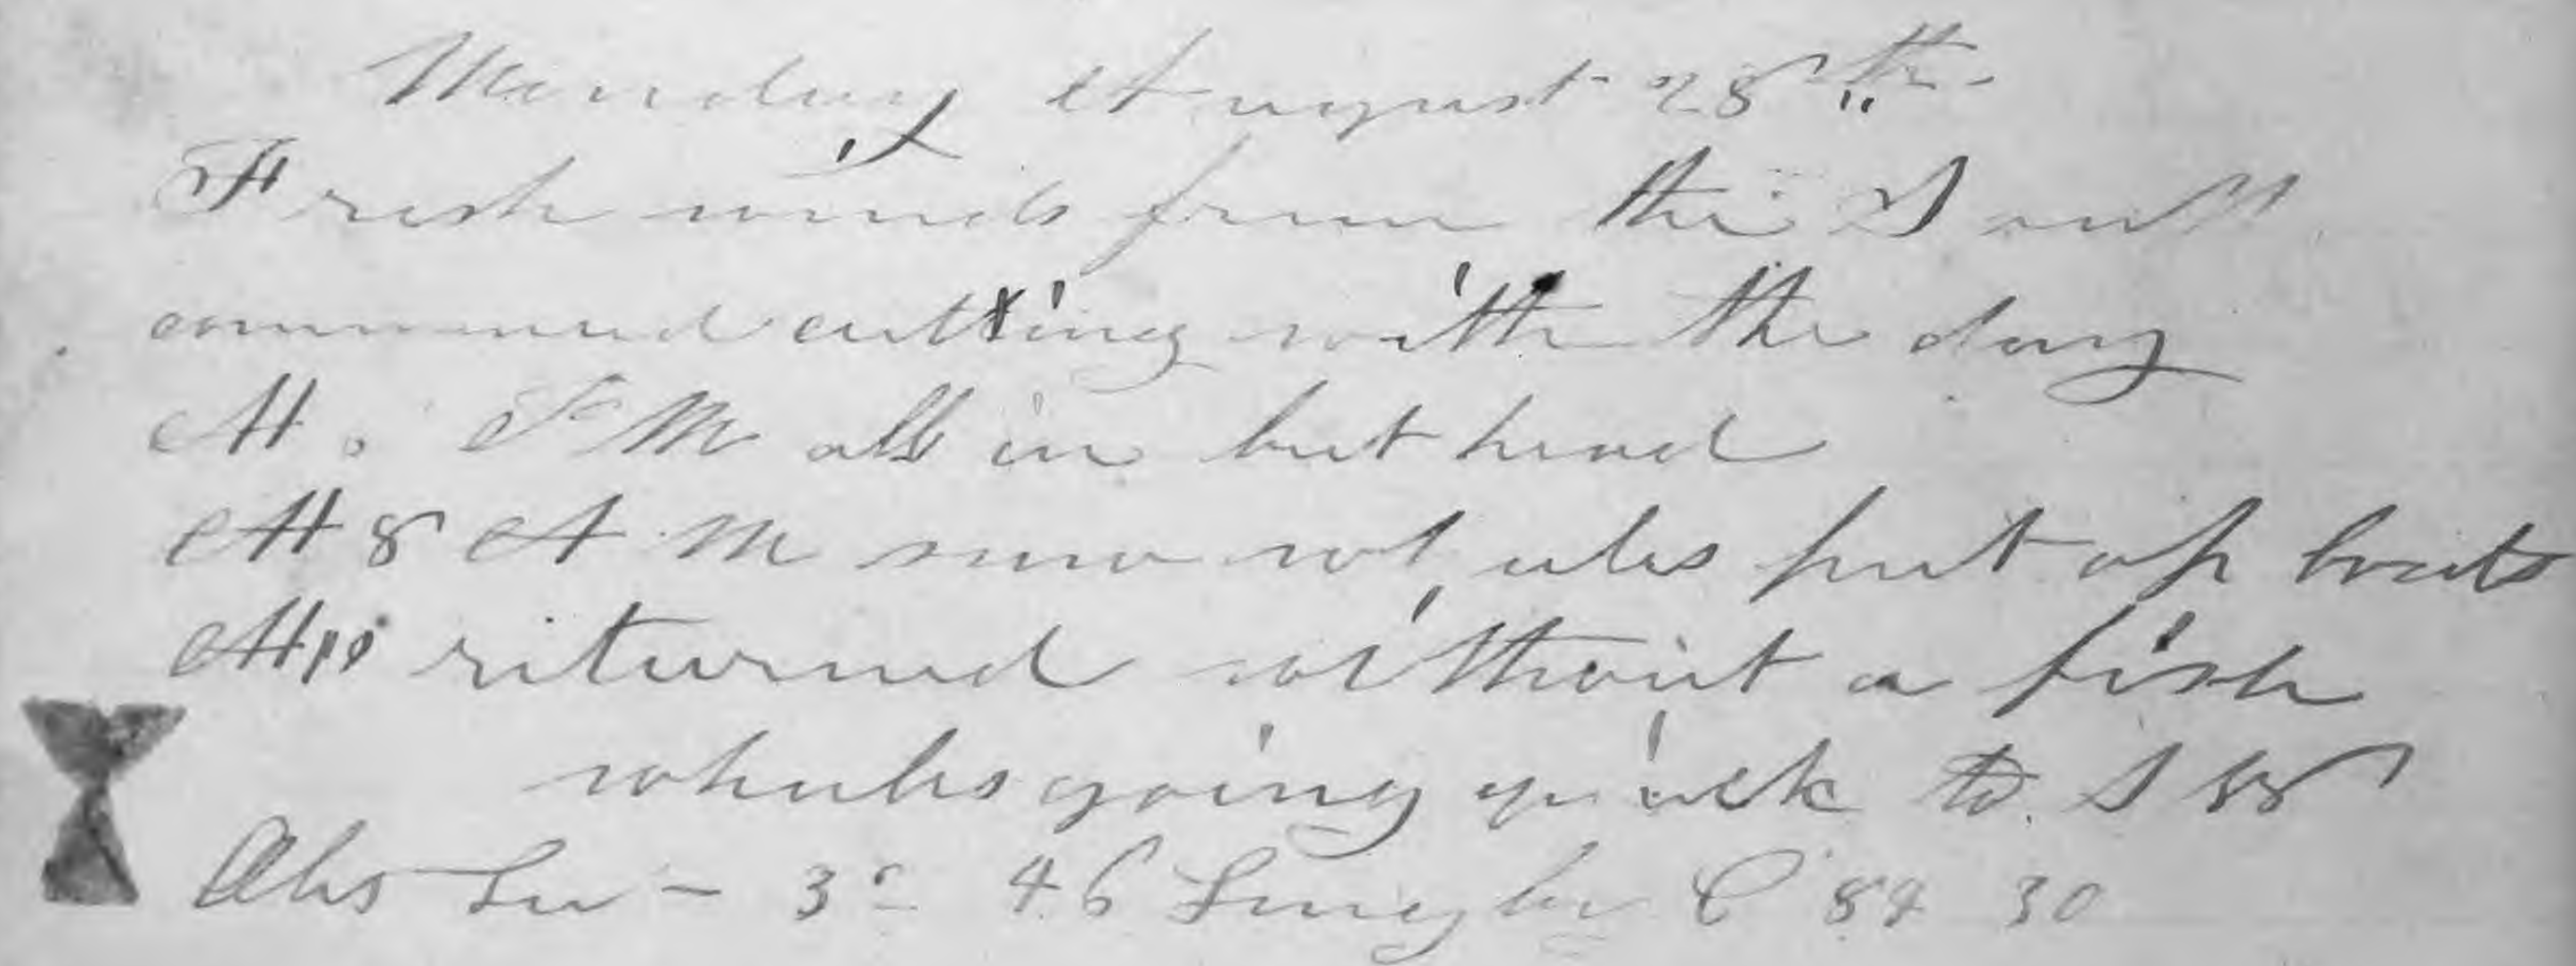 Monday August 28th
Fresh winds from the South
commenced cutting with the day
At PM all in but head
At 8 A M saw whales put of boats
At 10 returned without a fish
whales going quick to S W
Obs Lat - 3° 46 Long by C 84 30